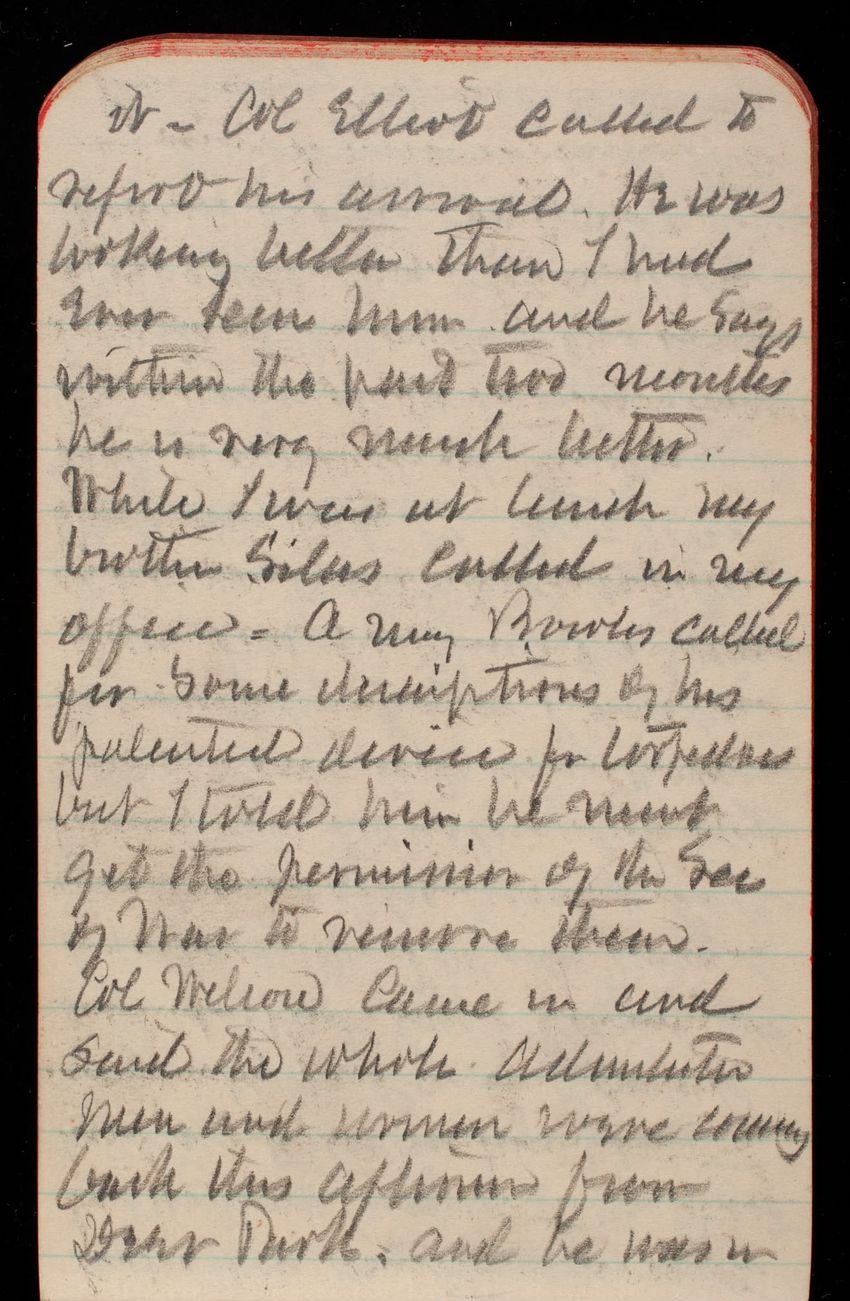 it - Col Elliot called to
report his arrival. He was
looking better than I had
ever seen him and he says
within the past two months
he is very much better.
While I was at lunch my
brother Silas called in my
office = A Bowles called
for some descriptions of his
patented device for torpedoes
but I told him he must
get the permission of the Sec
of War to remove them.
Col Wilson came in and
said the whole
men and women were coming
back this afternoon from
Deer Park. and he was in